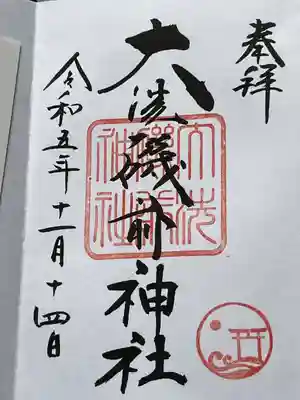 奉拝
大洗磯前神社
令和五年十一月十四日
大洗
磯前
神社